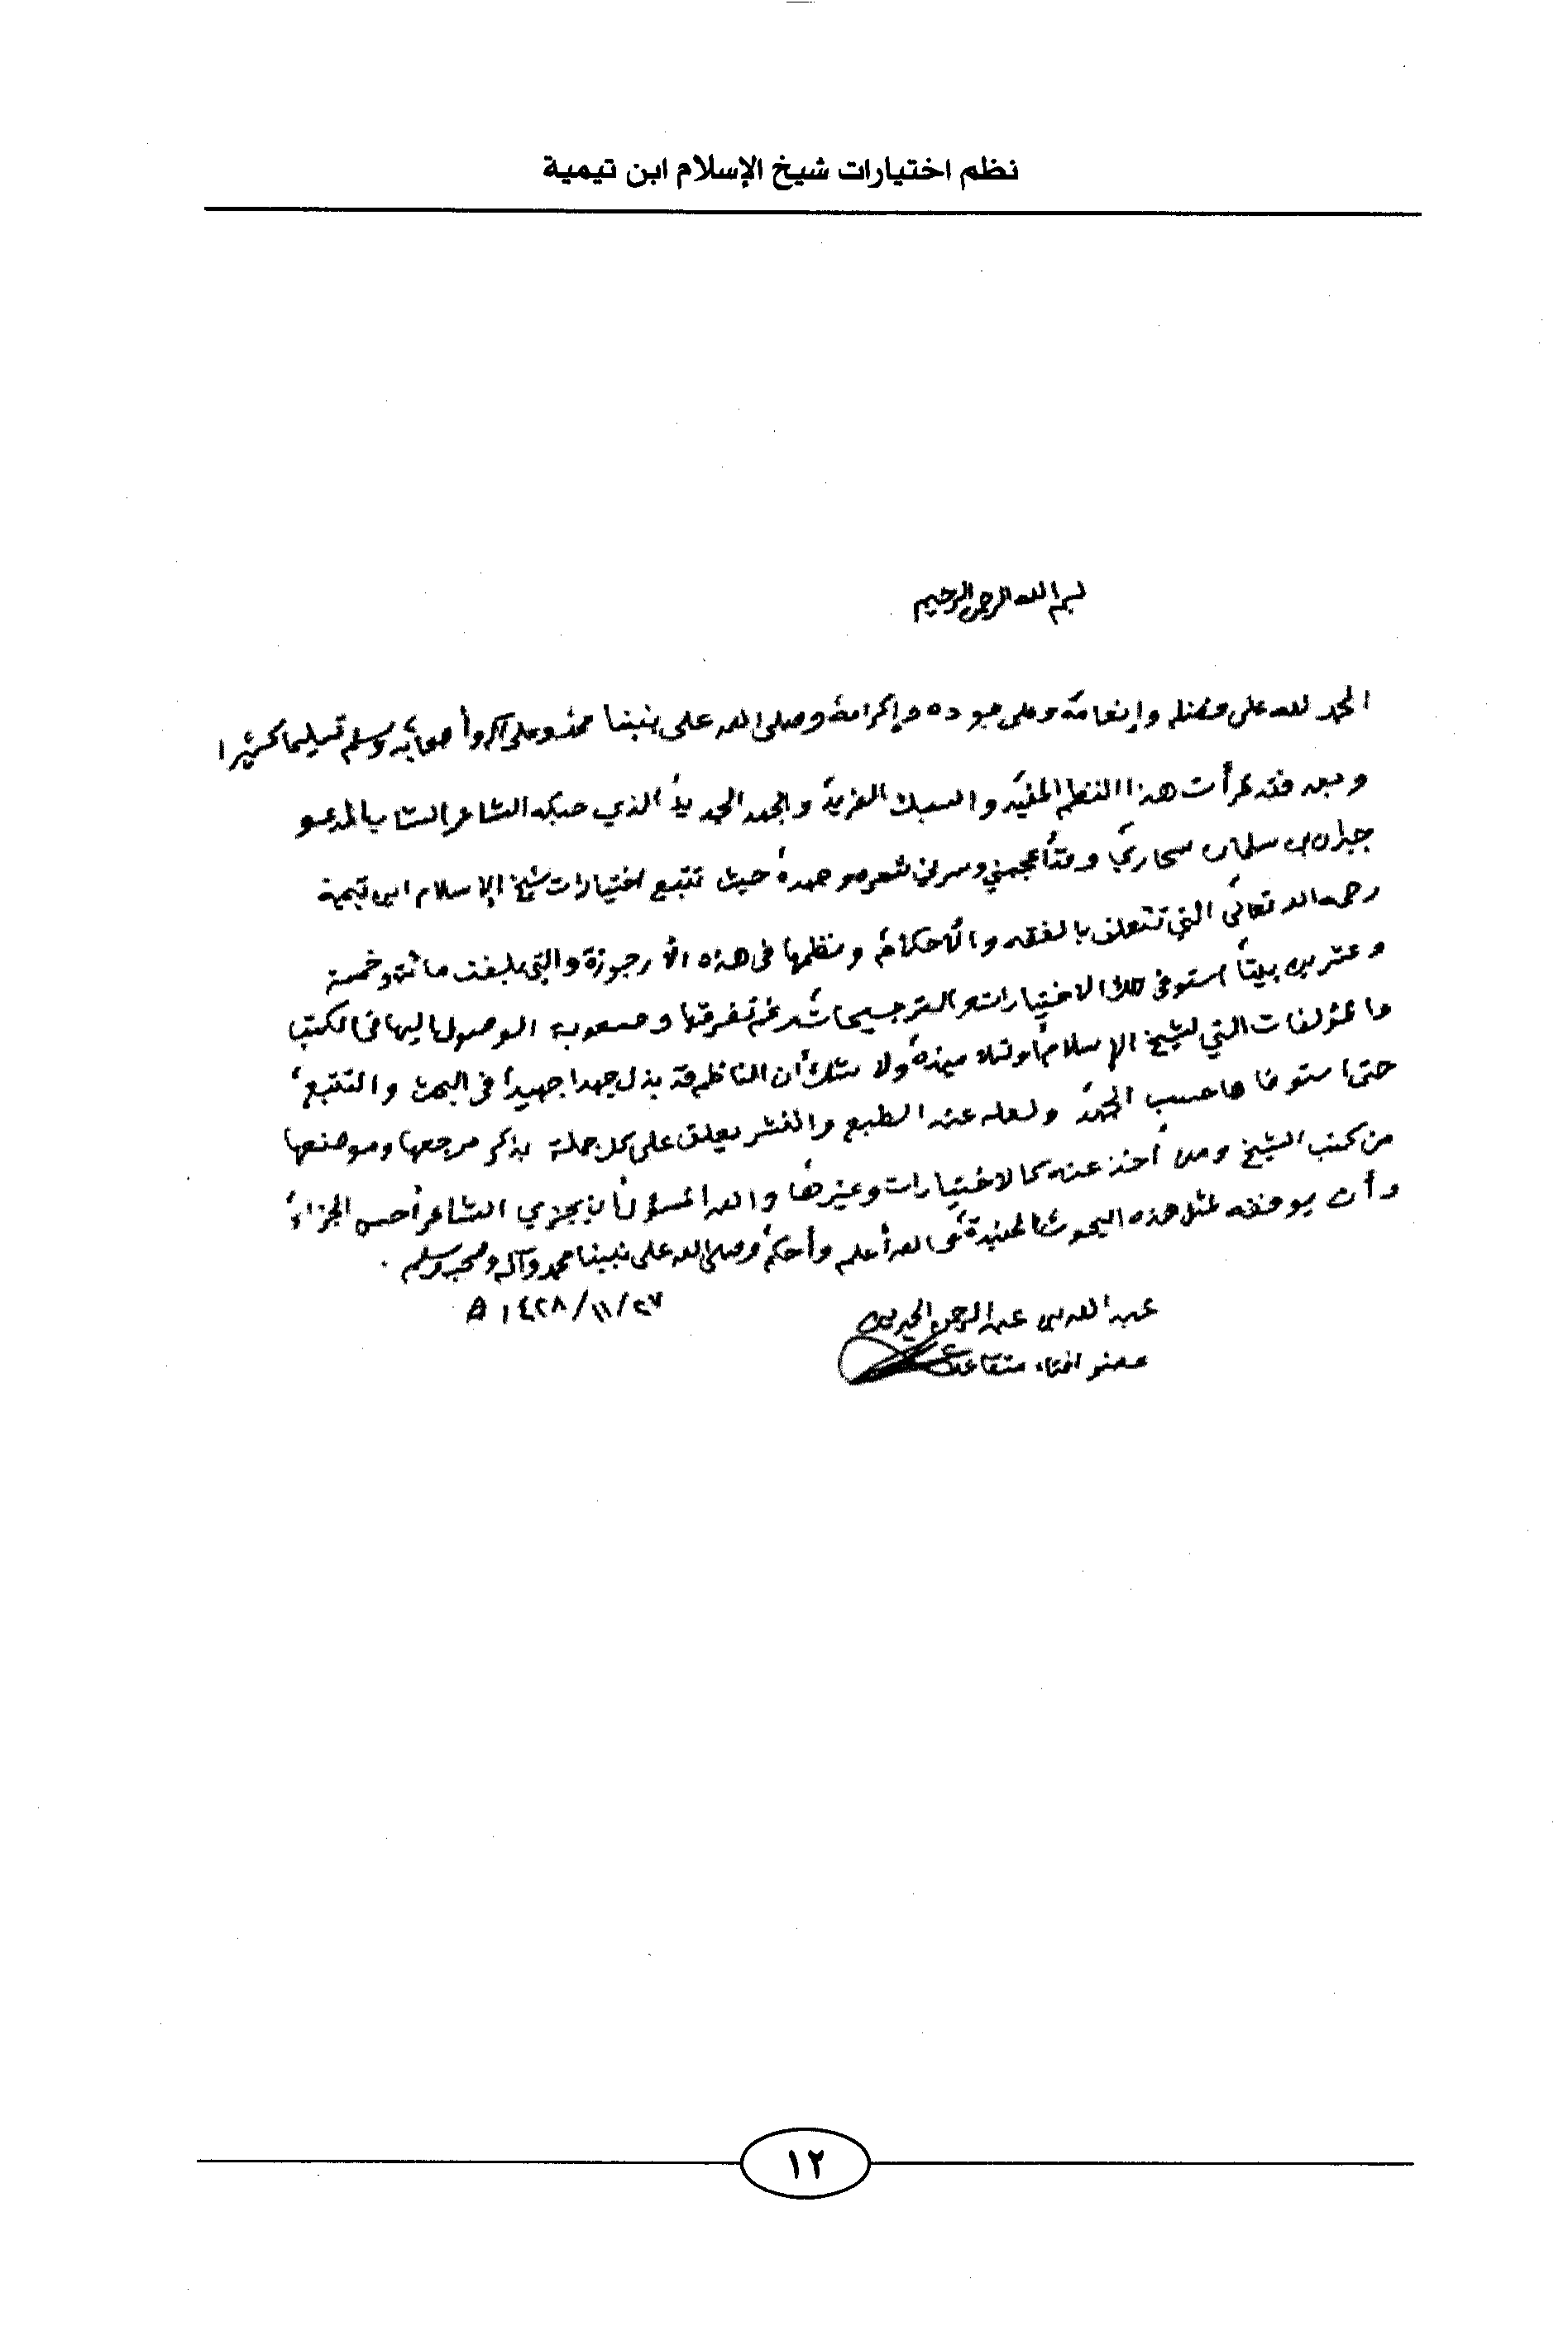 نظم اختيارات شيخ الإسلام ابن تيمية
بسم الله الرحمن الرحيم
الحمد لله على فضله وإنعامه وعلى جوده وإكرامه وصلى الله على نبينا محمد وعلى آله وأصحابه وسلم تسليما كثيرا
وبعد فقد قرأت هذا النظم المفيد والسبك الفريد والجهد الجديد الذي حبكه الشاعر الشاب المدعو
جبران بن سلمان سحاري وقد أعجبني وسرني شعره وجهده حيث تتبع اختيارات شيخ الإسلام ابن تيمية
رحمه الله تعالى التي تتعلق بالفقه والأحكام ونظمها في هذه الأرجوزة والتي بلغت مائة وخمسة
وعشرين بيتاً استوفى تلك الاختيارات والترجيحات رغم تفرقها وصعوبة الوصول إليها في الكتب
والمؤلفات التي لشيخ الإسلام أو تلاميذه ولا شك أن الناظم قد بذل جهدا جهيداً في البحث والتتبع
حتى استوفاها حسب الجهد ولعله عند الطبع والنشر يعلق على كل جملة بذكر مرجعها وموضعها
من كتب الشيخ ومن أخذ عنه كالاختيارات وغيرها والله المسؤول أن يجزي الشاعر أحسن الجزاء
وأن يوفقه لمثل هذه البحوث المفيدة والله أعلم وأحكم وصلى الله على نبينا محمد وآله وصحبه وسلم .
عبد الله بن عبد الرحمن الجبرين ١٤٢٨/١١/٢٧ هـ
عضو افتاء متقاعد
١٢